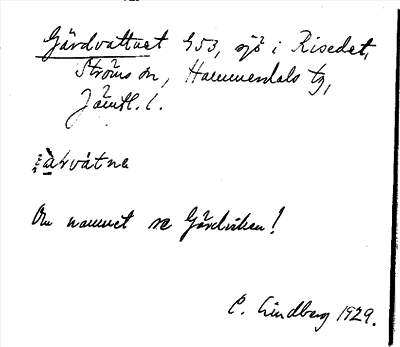 Gärdvattnet 453, sjö i Risedet,
Ströms sn, Hammerdals tg,
Jämtl. l.
Om namnet se Gärdviken!
C. Lindberg 1929.